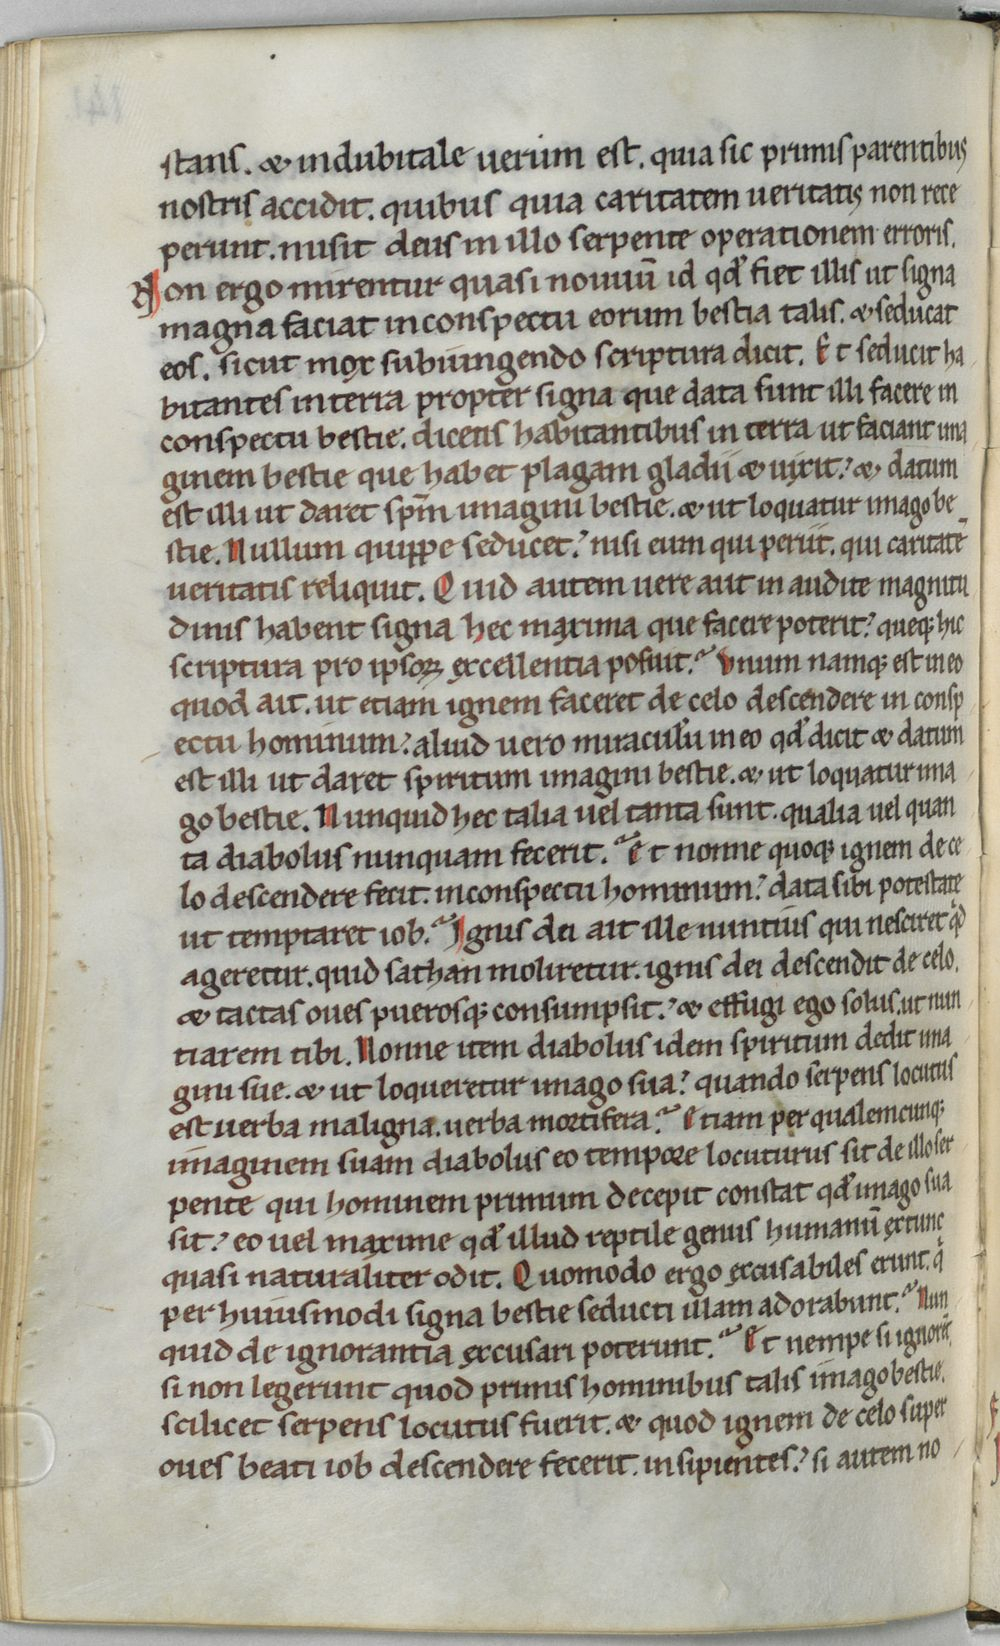 stans. & indubitale uerum est. quia sic primis parentibus
nostris accidit. quibus quia caritatem ueritatis non rece
perunt. misit deus in illo serpente operationem erroris.
Non ergo mirentur quasi nouuū id qđ fiet illis ut signa
magna faciat in conspectu eorum bestia talis. & seducat
eos. sicut mox subiungendo scriptura dicit. Et seducit ha
bitantes in terra propter signa que data sunt illi facere in
conspectu bestie. dicens habitantibus in terra ut faciant ima
ginem bestie que habet plagam gladii & uixit? & datum
est illi ut daret spm̄ imagini bestie. & ut loquatur imago be
stie. Nullum quippe seducet? nisi eum qui periit. qui caritatē
ueritatis reliquit. Quid autem uere aut in audite magnitu
dinis habent signa hec maxima que facere poterit? queq; hic
scriptura pro ipsoꝝ excellentia posuit? Vnum namq; est in eo
quod ait. ut etiam ignem faceret de celo descendere in consp
ectu hominum? aliud uero miraculū in eo qđ dicit & datum
est illi ut daret spiritum imagini bestie. & ut loquatur ima
go bestie. Nunquid hec talia uel tanta sunt. qualia uel quan
ta diabolus nunquam fecerit? Et nonne quoq; ignem de ce
lo descendere fecit. in conspectu hominum? data sibi potestate
ut temptaret iob? Ignis dei ait ille nuntius qui nesciret qd
ageretur. quid sathan moliretur. ignis dei descendit de celo.
& tactas oues puerosq; consumpsit? & effugi ego solus. ut nun
tiarem tibi. Nonne item diabolus idem spiritum dedit ima
gini sue. & ut loqueretur imago sua? quando serpens locutus
est uerba maligna. uerba mortifera? Etiam per qualemcunq;
imaginem suam diabolus eo tempore locuturus sit de illo ser
pente qui hominem primum decepit constat qđ imago sua
sit? eo uel maxime qđ illud reptile genus humanū ex tunc
quasi naturaliter odit. Quomodo ergo excusabiles erunt. q̄
per huiusmodi signa bestie seducti illam adorabunt? Nun
quid de ignorantia excusari poterunt? Et nempe si ignorēt
si non legerunt quod primis hominibus talis imago bestie.
scilicet serpens locutus fuerit. & quod ignem de celo super
oues beati iob descendere fecerit. insipientes? si autem no